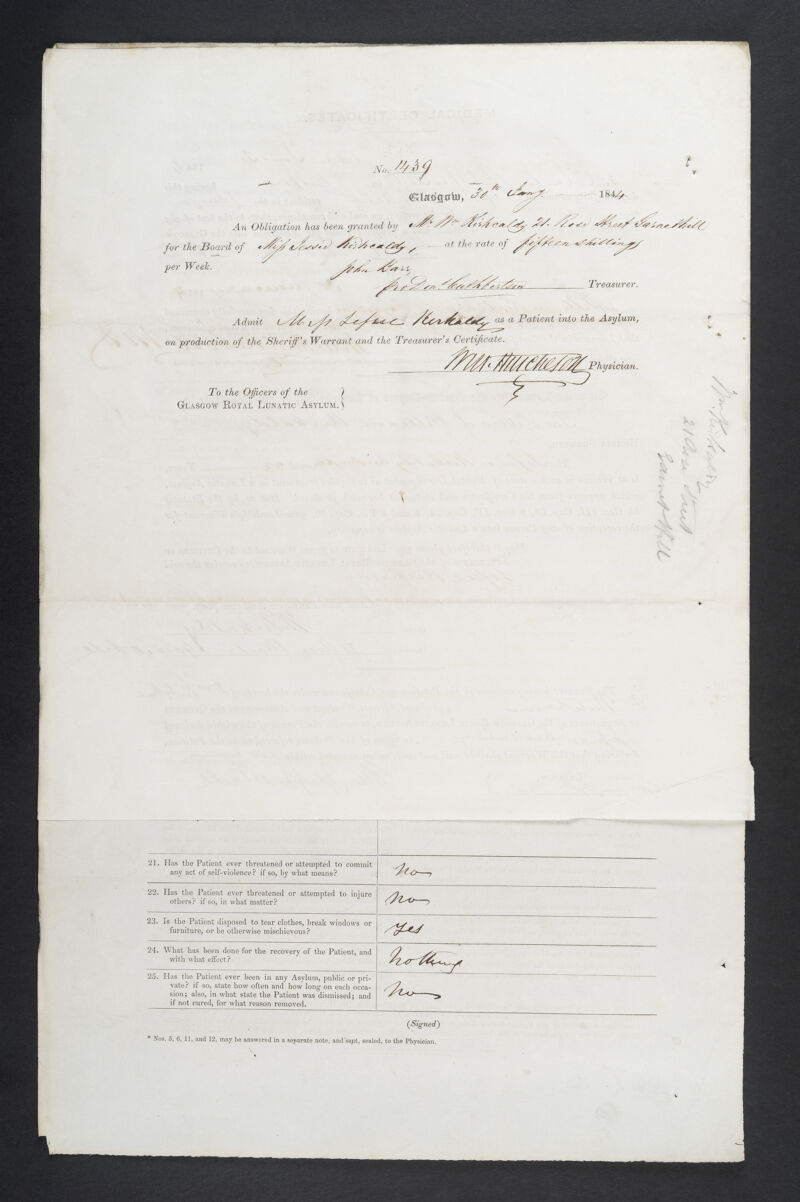 No. 1439
Glasgow, 30th Jany 1844
An Obligation has been granted by Mr Wm Kirkcaldy 21. Rose Street Garnethill
for the Board of Miss Jessie Kirkcaldy, at the rate of fifteen shillings
per Week. John Barr
pro Cuthbertson Treasurer.
Admit Miss Jessie Kirkcaldy as a Patient into the Asylum,
on production of the Sheriff's Warrant and the Treasurer's Certificate.
Wm. Hutcheson Physician.
To the Officers of the
Glasgow Royal Lunatic Asylum.
Wm Kirkcaldy
21 Rose Street
Garnet Hill
21. Has the Patient ever threatened or attempted to commit
any act of self-violence? if so, by what means?
No
22. Has the Patient ever threatened or attempted to injure
others? if so, in what matter?
No
23. Is the Patient disposed to tear clothes, break windows or
furniture, or be otherwise mischievous?
Yes
24. What has been done for the recovery of the Patient, and
with what effect?
Nothing
25. Has the Patient ever been in any Asylum, public or pri-
vate? if so, state how often and how long on each occa-
sion; also, in what state the Patient was dismissed; and
if not cured, for what reason removed.
No
(Signed)
* Nos. 5, 6, 11, and 12, may be answered in a separate note, and sent, sealed, to the Physician.